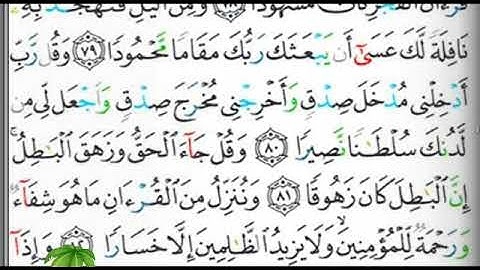 قُرْءَانَ ٱلْفَجْرِ كَانَ مَشْهُودًا ٧٨ وَمِنَ ٱلَّيْلِ فَتَهَجَّدْ بِهِۦ
نَافِلَةً لَّكَ عَسَىٰٓ أَن يَبْعَثَكَ رَبُّكَ مَقَامًا مَّحْمُودًا ٧٩ وَقُل رَّبِّ
أَدْخِلْنِى مُدْخَلَ صِدْقٍ وَأَخْرِجْنِى مُخْرَجَ صِدْقٍ وَٱجْعَل لِّى مِن
لَّدُنكَ سُلْطَٰنًا نَّصِيرًا ٨٠ وَقُلْ جَآءَ ٱلْحَقُّ وَزَهَقَ ٱلْبَٰطِلُ ۚ
إِنَّ ٱلْبَٰطِلَ كَانَ زَهُوقًا ٨١ وَنُنَزِّلُ مِنَ ٱلْقُرْءَانِ مَا هُوَ شِفَآءٌ
وَرَحْمَةٌ لِّلْمُؤْمِنِينَ ۙ وَلَا يَزِيدُ ٱلظَّٰلِمِينَ إِلَّا خَسَارًا ٨٢ وَإِذَآ